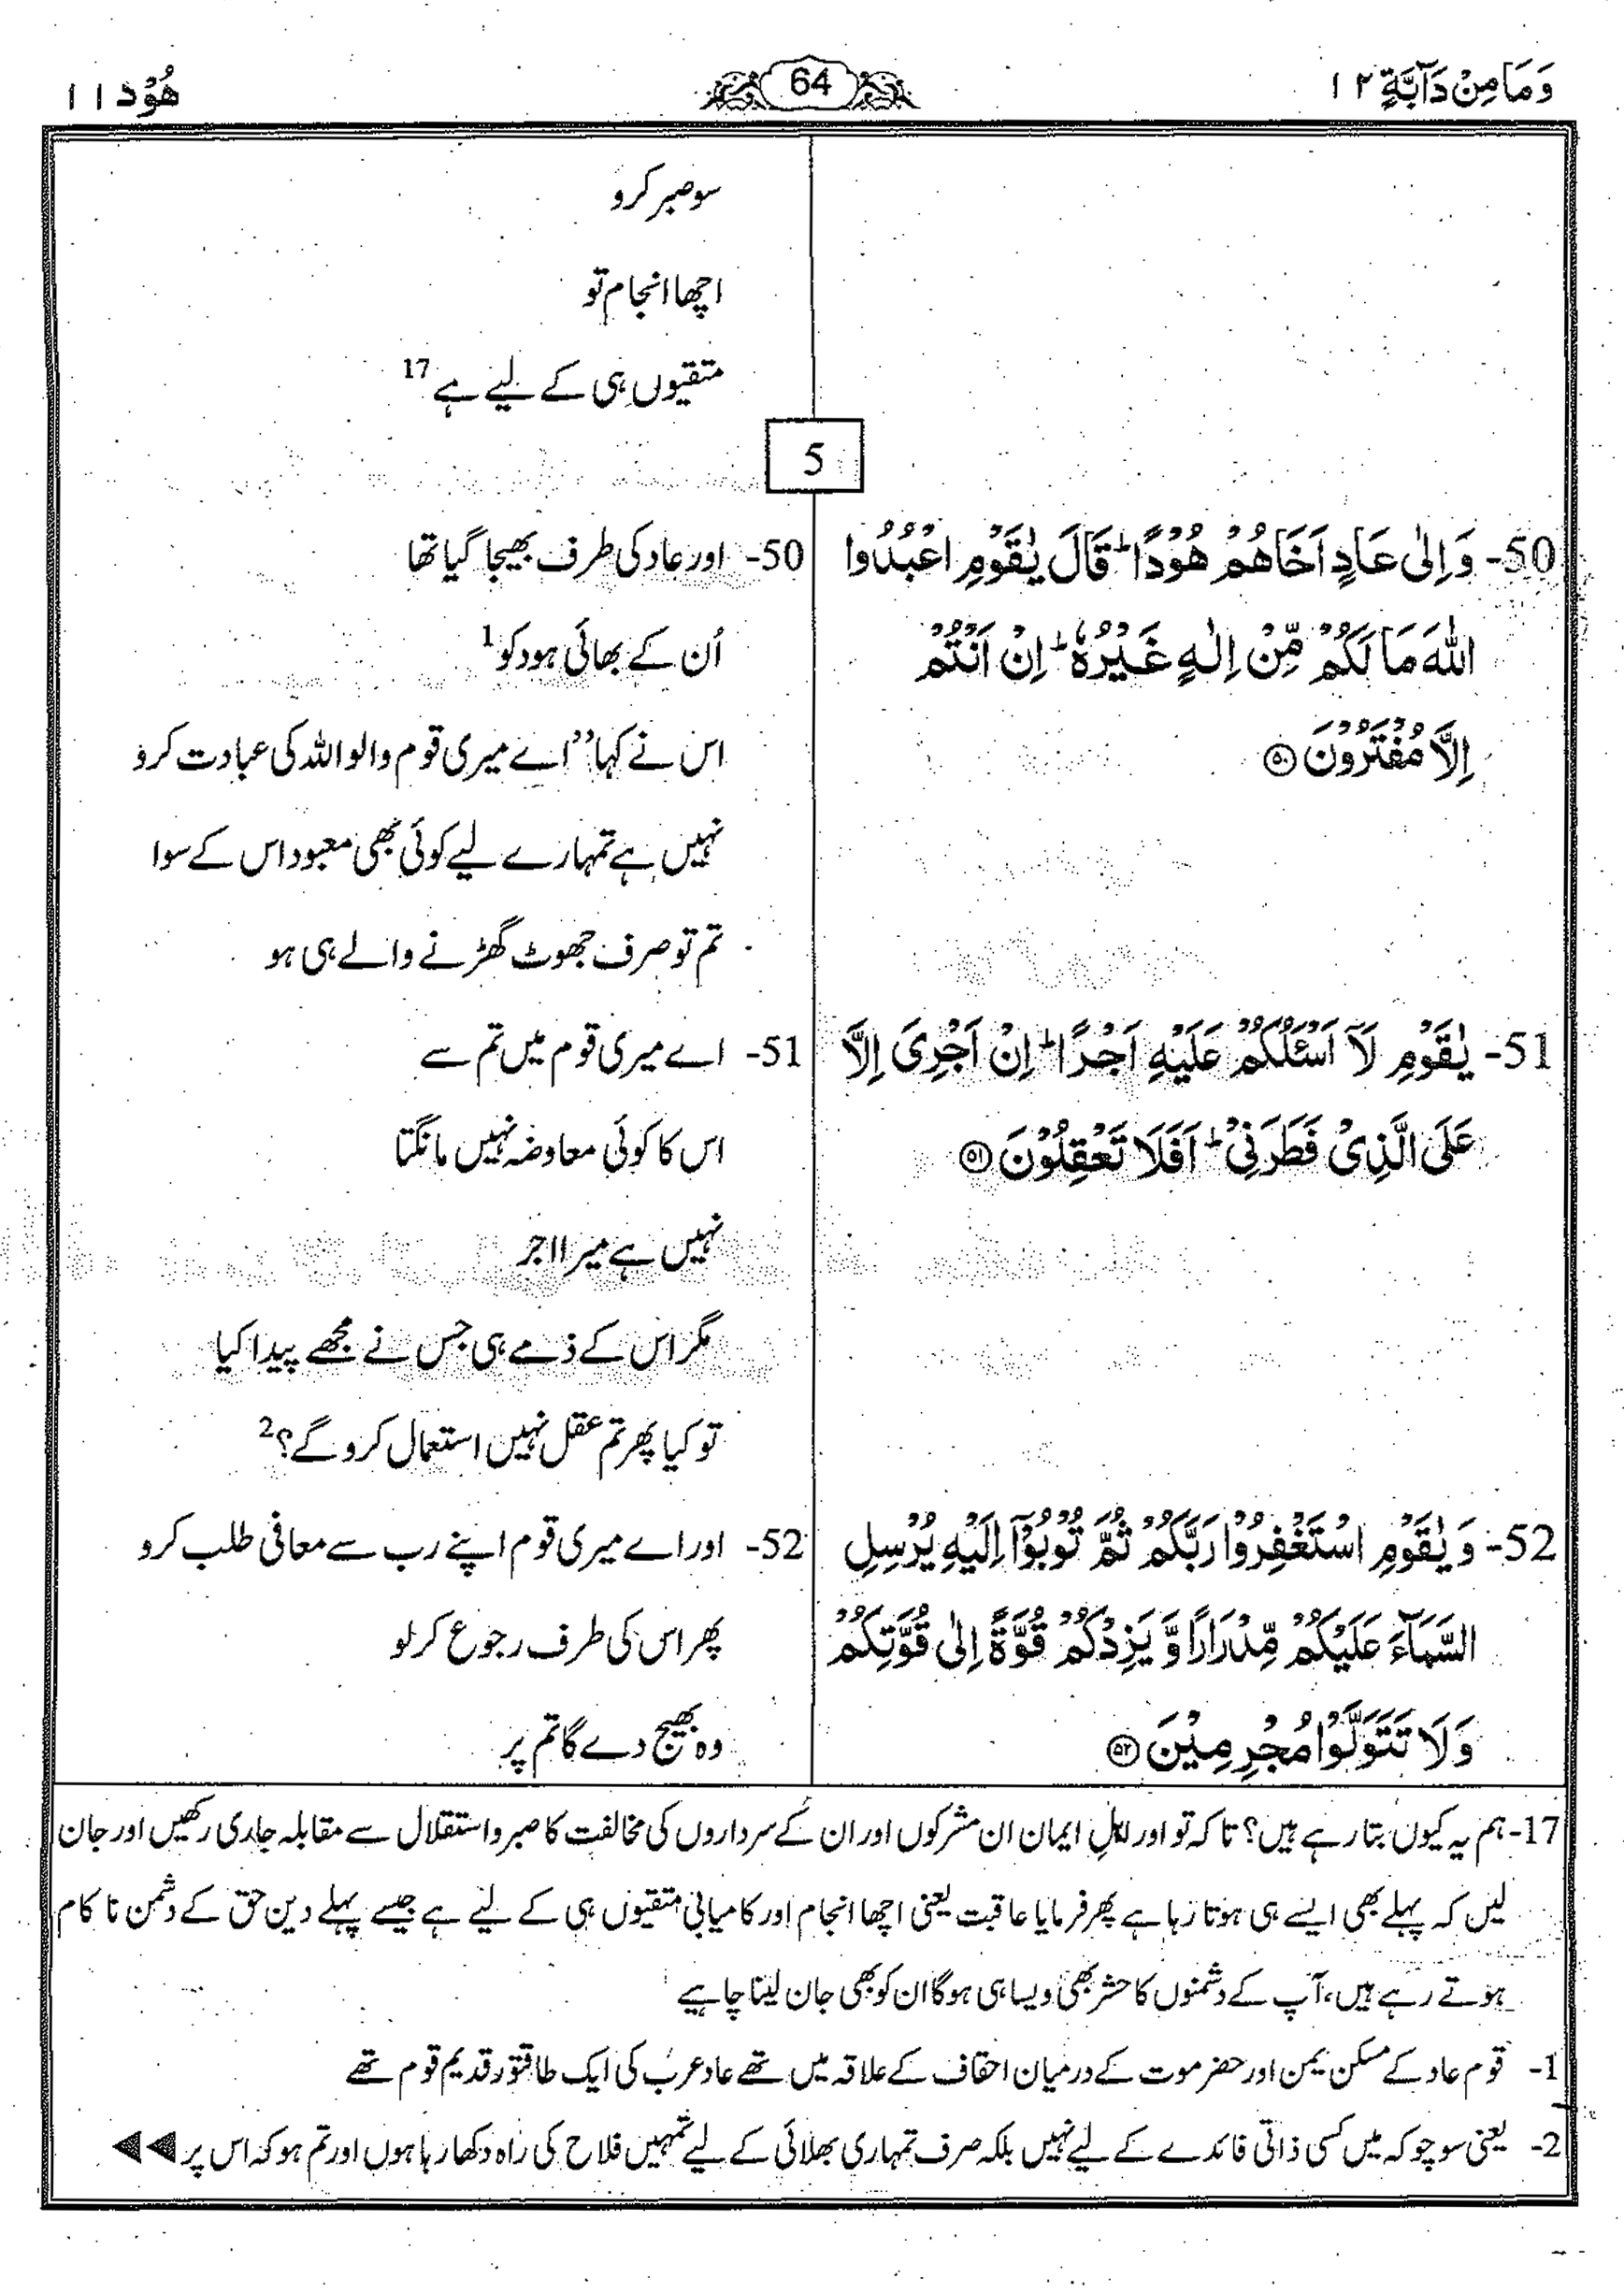 وَمَا مِنْ دَآبَّةٍ ۱۲
64
هُوْد ۱۱
سو صبر کرو
اچھا انجام تو
متقیوں ہی کے لیے ہے 17
5
50- وَ اِلٰى عَادٍ اَخَاهُمْ هُوْدًا ؕ قَالَ يٰقَوْمِ اعْبُدُوا
اللّٰهَ مَا لَكُمْ مِّنْ اِلٰهٍ غَيْرُهٗ ؕ اِنْ اَنْتُمْ
اِلَّا مُفْتَرُوْنَ ۵۰
50- اور عاد کی طرف بھیجا گیا تھا
اُن کے بھائی ہود کو 1
اس نے کہا ’’اے میری قوم والو اللہ کی عبادت کرو
نہیں ہے تمہارے لیے کوئی بھی معبود اس کے سوا
تم تو صرف جھوٹ گھڑنے والے ہی ہو
51- يٰقَوْمِ لَاۤ اَسْـَٔلُكُمْ عَلَيْهِ اَجْرًا ؕ اِنْ اَجْرِىَ اِلَّا
عَلَى الَّذِىْ فَطَرَنِىْ ؕ اَفَلَا تَعْقِلُوْنَ ۵۱
51- اے میری قوم میں تم سے
اس کا کوئی معاوضہ نہیں مانگتا
نہیں ہے میرا اجر
مگر اس کے ذمے ہی جس نے مجھے پیدا کیا
تو کیا پھر تم عقل نہیں استعمال کرو گے؟ 2
52- وَ يٰقَوْمِ اسْتَغْفِرُوْا رَبَّكُمْ ثُمَّ تُوْبُوْۤا اِلَيْهِ يُرْسِلِ
السَّمَآءَ عَلَيْكُمْ مِّدْرَارًا وَّ يَزِدْكُمْ قُوَّةً اِلٰى قُوَّتِكُمْ
وَلَا تَتَوَلَّوْا مُجْرِمِيْنَ ۵۲
52- اور اے میری قوم اپنے رب سے معافی طلب کرو
پھر اس کی طرف رجوع کر لو
وہ بھیج دے گا تم پر
17- ہم یہ کیوں بتا رہے ہیں؟ تاکہ تو اور اہلِ ایمان ان مشرکوں اور ان کے سرداروں کی مخالفت کا صبر و استقلال سے مقابلہ جاری رکھیں اور جان
لیں کہ پہلے بھی ایسے ہی ہوتا رہا ہے پھر فرمایا عاقبت یعنی اچھا انجام اور کامیابی متقیوں ہی کے لیے ہے جیسے پہلے دین حق کے دشمن ناکام
ہوتے رہے ہیں، آپ کے دشمنوں کا حشر بھی ویسا ہی ہوگا ان کو بھی جان لینا چاہیے
1- قوم عاد کے مسکن یمن اور حضر موت کے درمیان احقاف کے علاقہ میں تھے عاد عرب کی ایک طاقتور قدیم قوم تھے
2- یعنی سوچو کہ میں کسی ذاتی فائدے کے لیے نہیں بلکہ صرف تمہاری بھلائی کے لیے تمہیں فلاح کی راہ دکھا رہا ہوں اور تم ہو کہ اس پر ◀◀